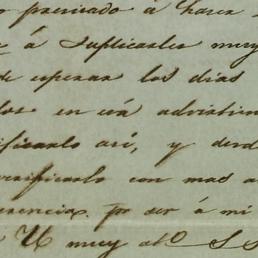 o precisado á hacer
á suplicarles muy
de esperar los dias
los en esa advertim
ificarlo así, y desde
verificarlo con mas a
erencia. por ser á mi
U muy at.o S S